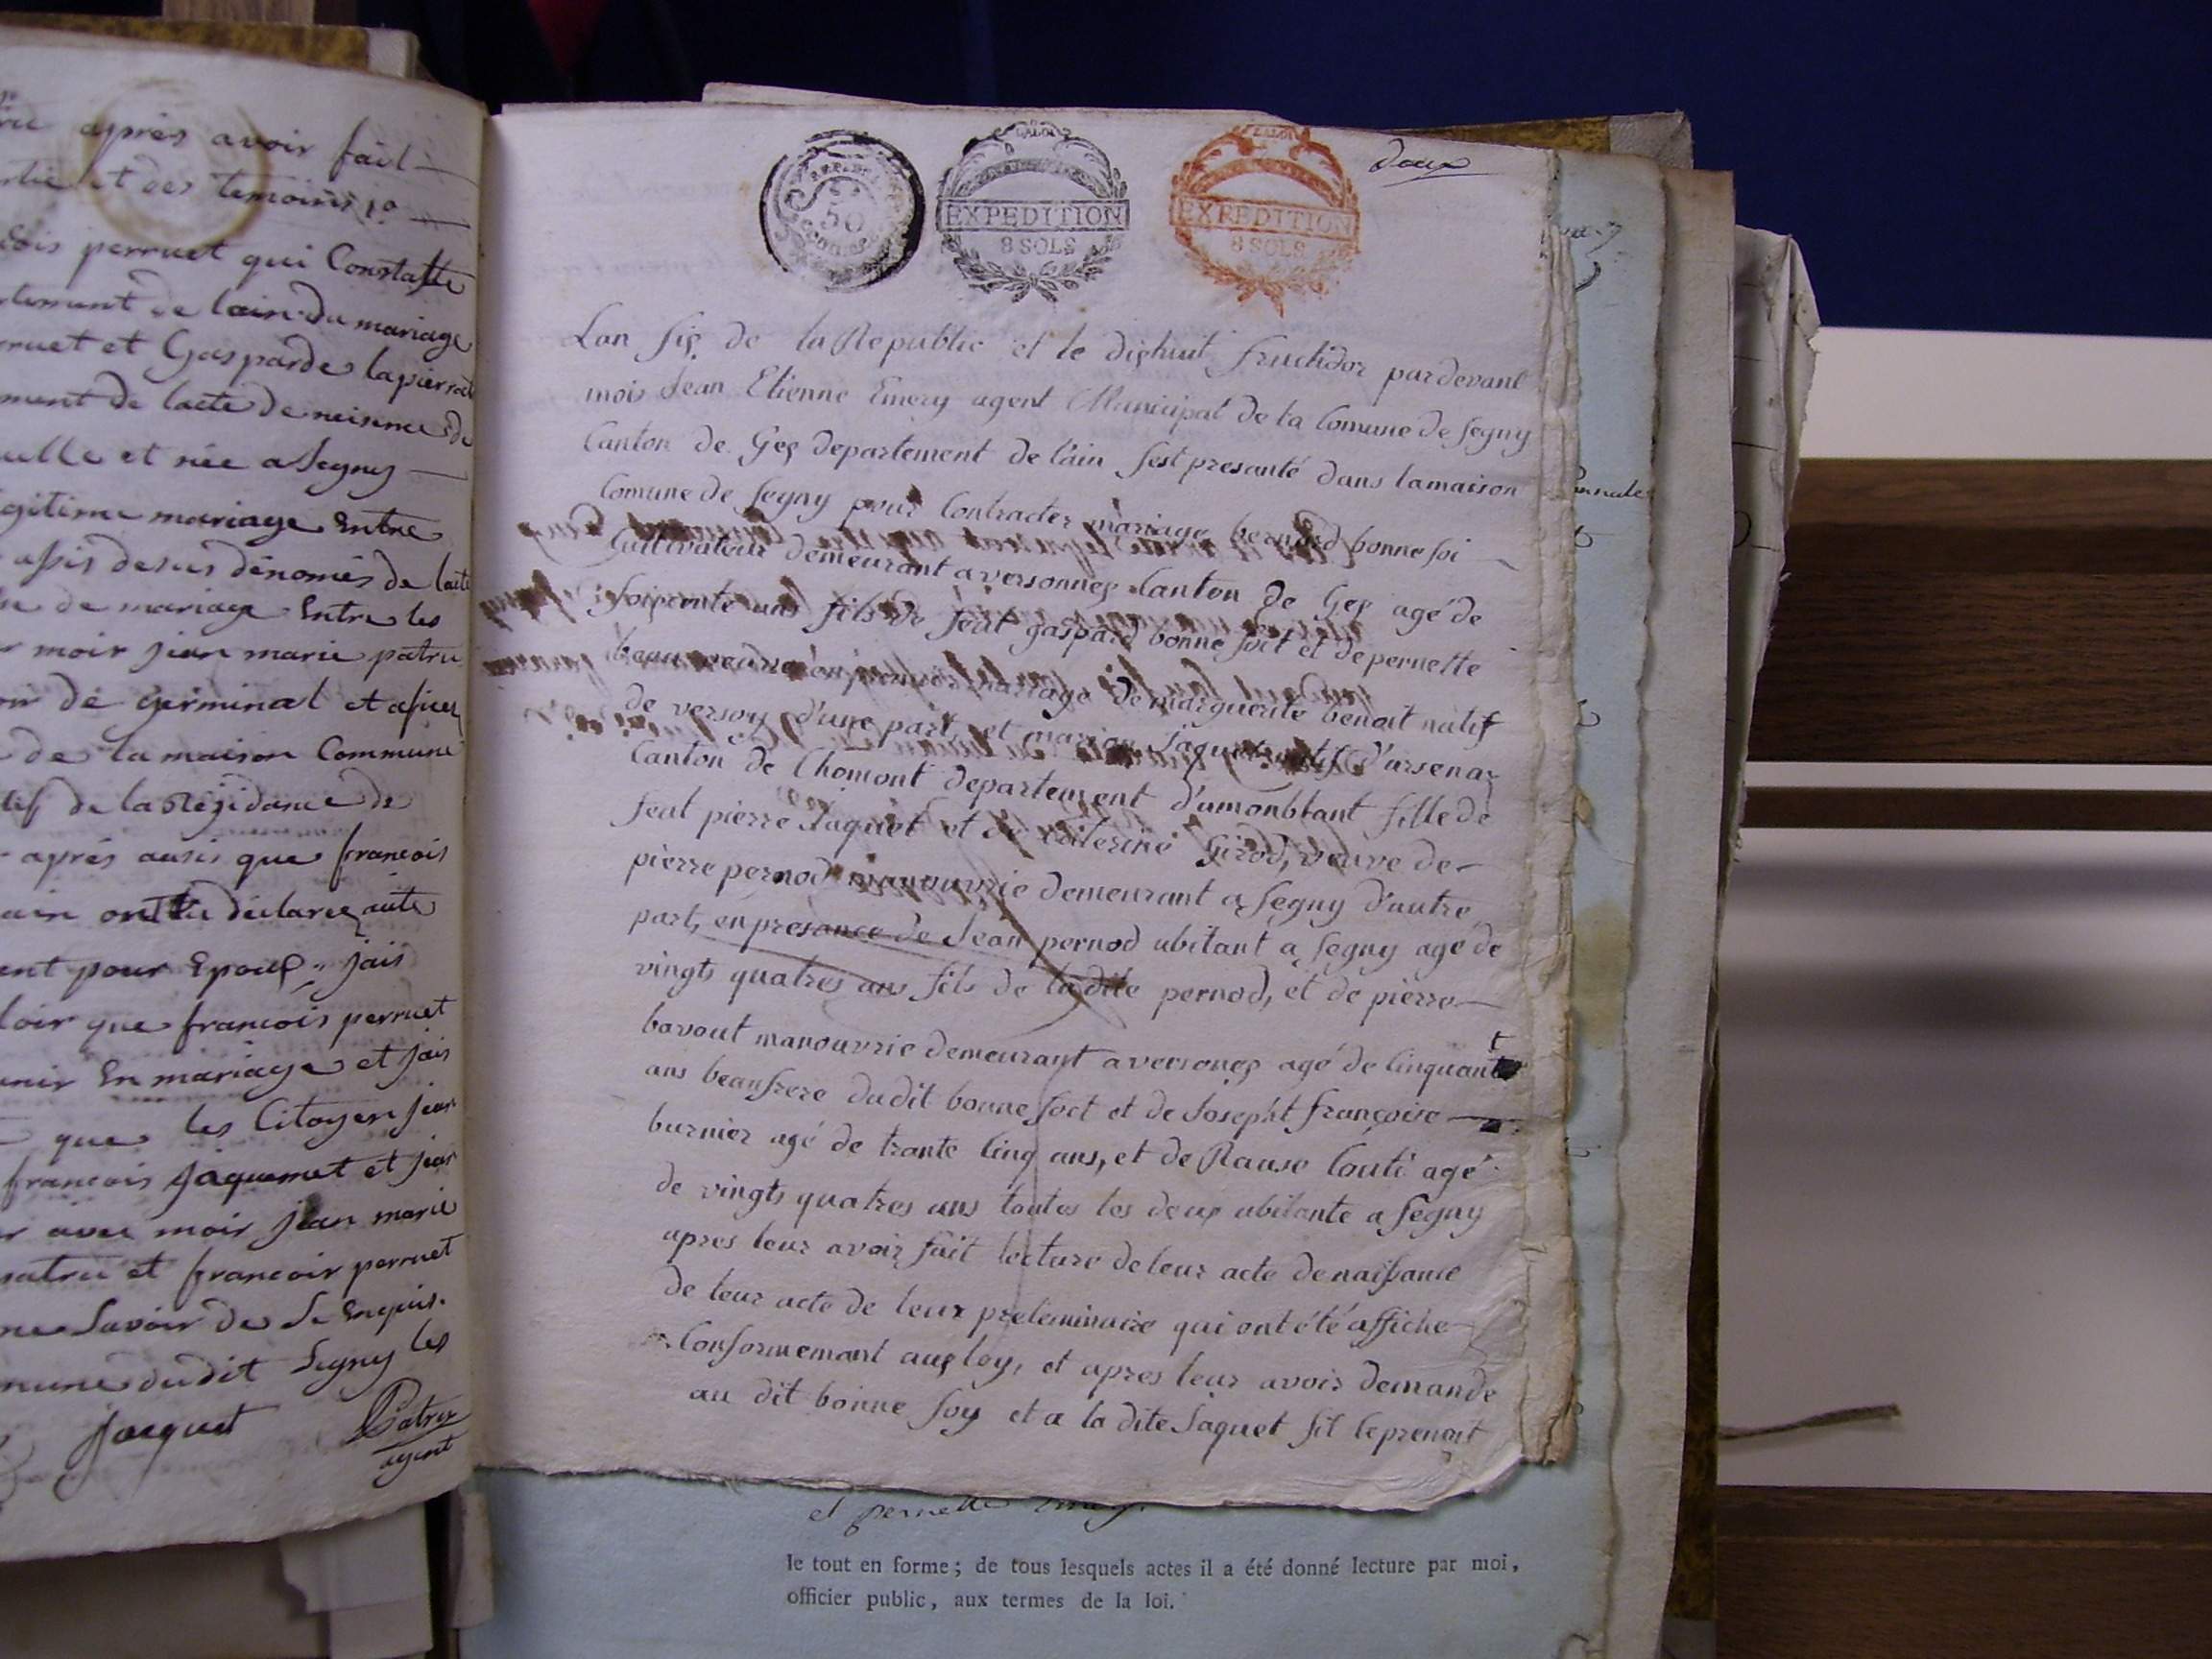 après avoir fait
et des temoins
perruet qui Constatte
de lain du mariage
et Gasparde lapierre
de lacte de neisence de
et née a Segny
mariage Entre
assis desus dénomés de lacte
de mariage Entre les
moir jean marie patru
de germinal et assicer
de la maison Commune
de la Régidance de
après ausis que francois
ain ont declaree aute
pour Epouse jais
que francois perruet
En mariage et jais
que les Citoyen jean
francois Jaquemet et jean
avec moir jean marie
patru et francoir perruet
Savoir de Se Enquis.
dudit Segny les
Jacquet Patru
agent
deux
LA LOI LA LOI
REP. FRA.
50
CENTIMES
EXPEDITION
8 SOLS
EXPEDITION
8 SOLS
Lan six de la Republic et le dixhuit fructidor pardevant
mois Jean Etienne Emery agent Municipal de la Comune de Segny
Canton de Gex departement de l'ain sest presanté dans lamaison
Comune de Segny pour Contracter mariage bernard bonne foi
Cultivateur demeurant a versonnex Canton de Gex agé de
soixente ans fils de feut gaspard bonne foit et de pernette
mariage de marguerite benoit natif
de versoy d'une part, et marion Jaquet natif d'arsenaz
Canton de Chomont departement d'umontblant fille de
feat pierre Jaquet et de Caterine Girod, veuve de
pierre pernod manouvrie demeurant a Segny d'autre
part, en presance de Jean pernod abitant a Segny agé de
vingts quatres ans fils de la dite pernod, et de pierre
bavout manouvrie demeurant a versonex agé de Cinquant
ans beaufrere dudit bonne foct et de Josepht françoise
burnier agé de trante Cinq ans, et de Rause Couti agé
de vingts quatres ans toutes les deux abitante a Segny
apres leur avoir fait lecture de leur acte de naissance
de leur acte de leur preleminaire qui ont été affiche
Conformemant aux loy, et apres leur avoir demande
au dit bonne foy et a la dite Jaquet sil le prenoit
et pernette Emery.
le tout en forme ; de tous lesquels actes il a été donné lecture par moi,
officier public, aux termes de la loi.